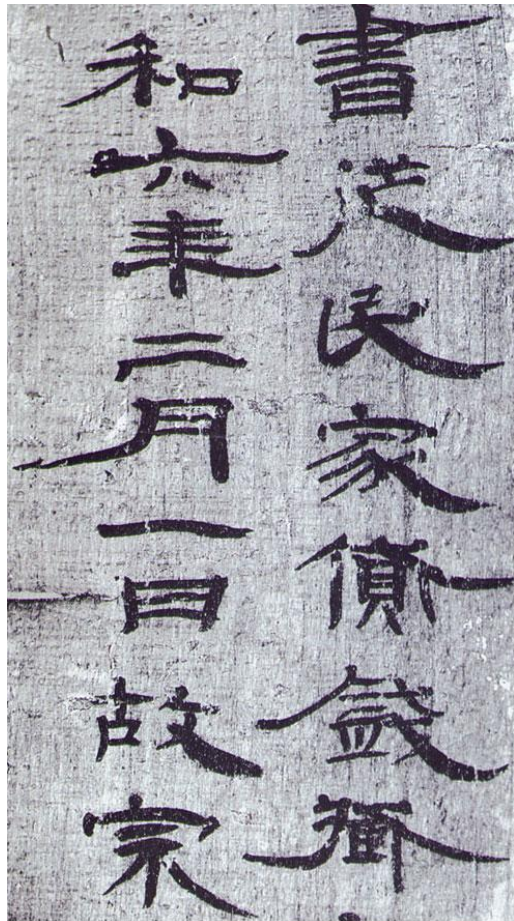 書從民家
和六年二月一日故宗